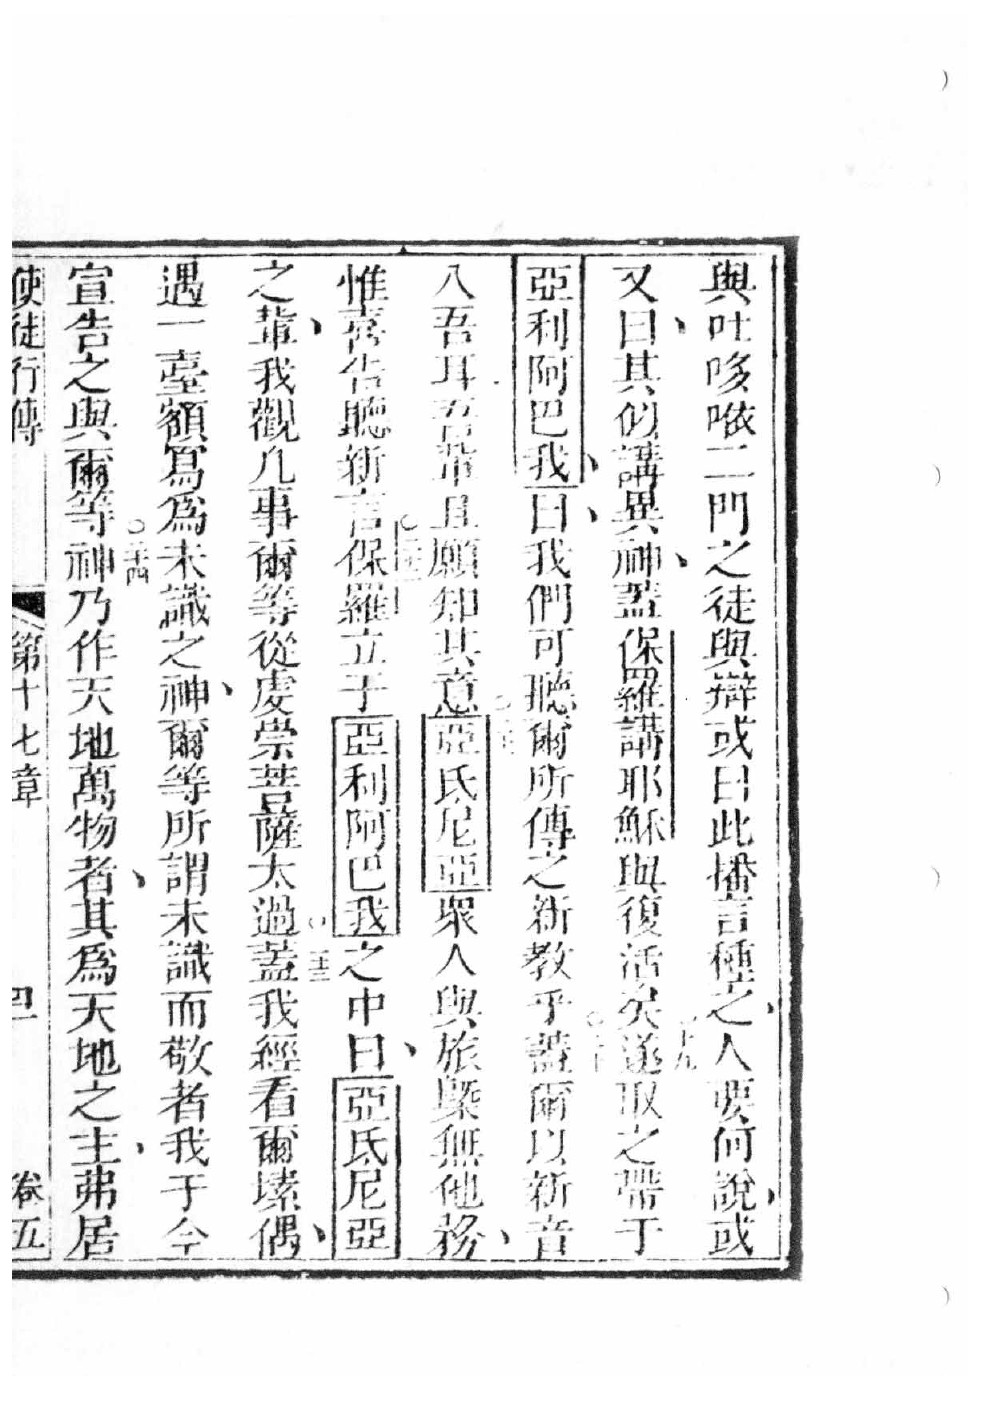 與吐哆唹二門之徒與辯或曰此播言種之人要何說或
又曰其似講異神蓋保羅講耶穌與復活矣遂取之帶于
亞利阿巴我曰我們可聽爾所傳之新教乎蓋爾以新音
入吾耳吾輩且願知其意亞氐尼亞眾人與旅槩無他務
惟喜告聽新言保羅立于亞利阿巴我之中曰亞氐尼亞
之輩我觀凡事爾等從虔崇菩薩太過蓋我經看爾塐偶
遇一臺額寫為未識之神爾等所謂未識而敬者我于今
宣告之與爾等神乃作天地萬物者其為天地之主弗居
使徒行傳 第十七章 卷五